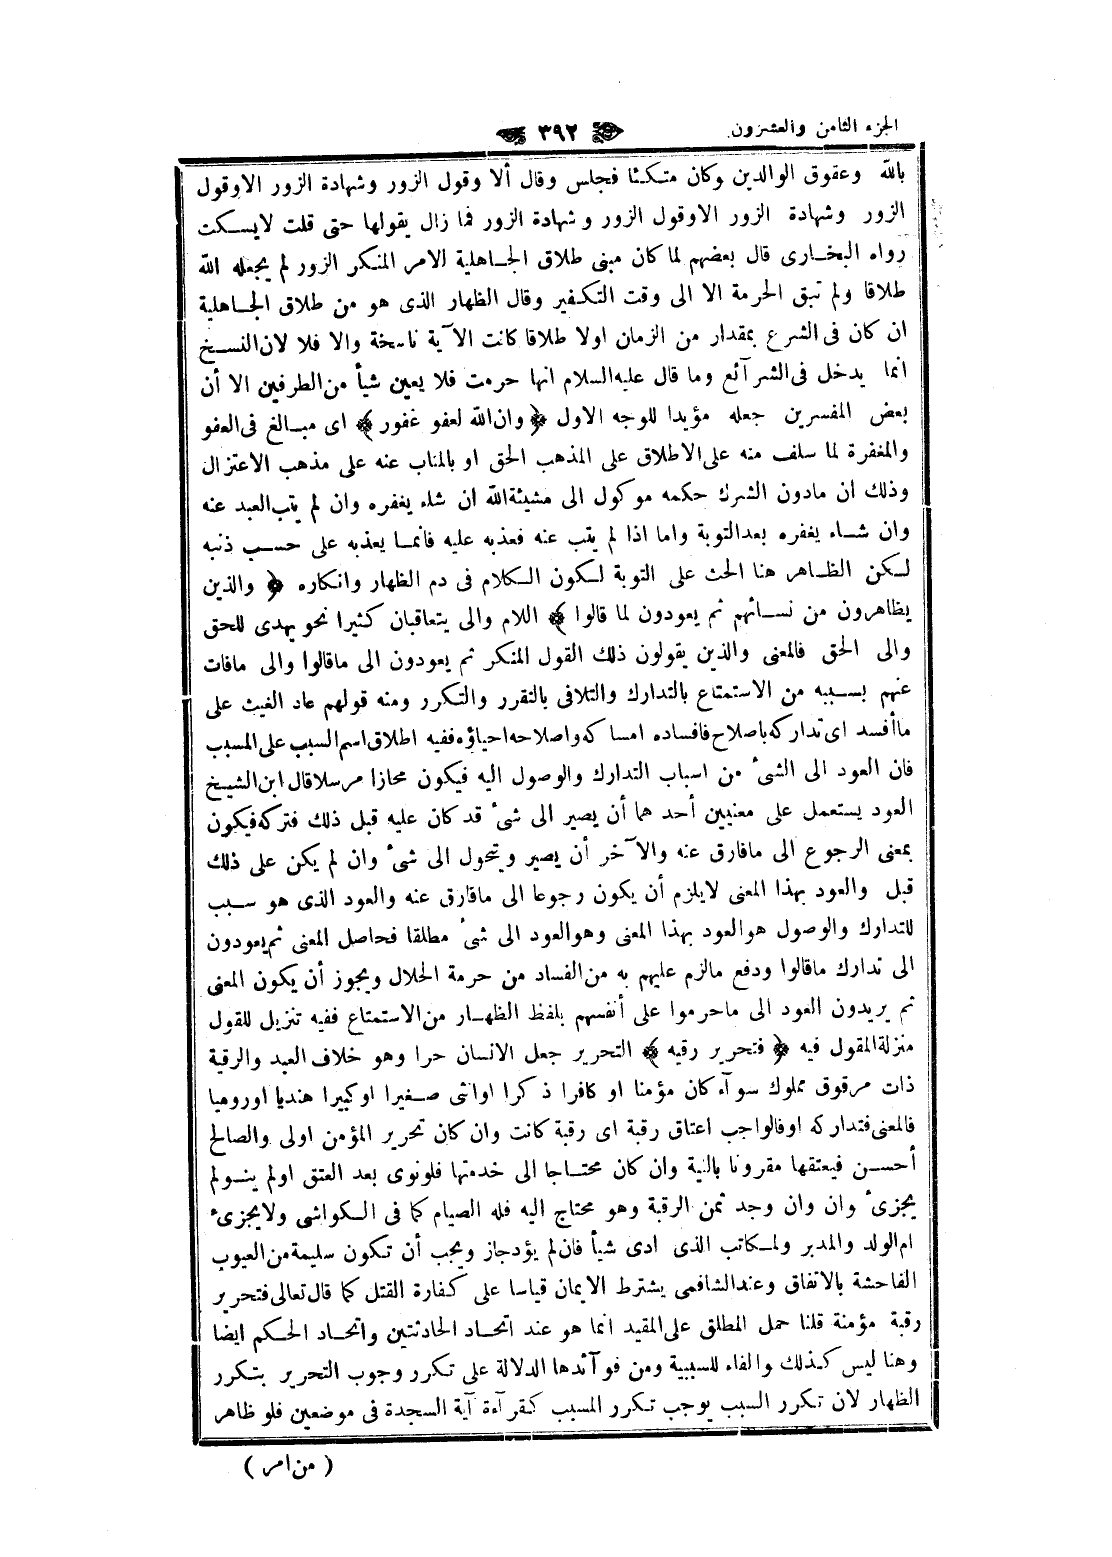 الجزء الثامن والعشرون
٣٩٢
بالله وعقوق الوالدين وكان متكئا فجلس وقال ألا وقول الزور وشهادة الزور الا وقول
الزور وشهادة الزور الا وقول الزور و شهادة الزور فما زال يقولها حتى قلت لايسكت
رواه البخارى قال بعضهم لما كان مبنى طلاق الجاهلية الامر المنكر الزور لم يجعله الله
طلاقا ولم تبق الحرمة الا الى وقت التكفير وقال الظهار الذى هو من طلاق الجاهلية
ان كان فى الشرع بمقدار من الزمان اولا طلاقا كانت الآية ناسخة والا فلا لان النسخ
انما يدخل فى الشرآئع وما قال عليه السلام انها حرمت فلا يعين شيأ من الطرفين الا أن
بعض المفسرين جعله مؤيدا للوجه الاول ﴿ وان الله لعفو غفور ﴾ اى مبالغ فى العفو
والمغفرة لما سلف منه على الاطلاق على المذهب الحق او بالمتاب عنه على مذهب الاعتزال
وذلك ان مادون الشرك حكمه موكول الى مشيئة الله ان شاء يغفره وان لم يتب العبد عنه
وان شاء يغفره بعد التوبة واما اذا لم يتب عنه فعذبه عليه فانما يعذبه على حسب ذنبه
لكن الظاهر هنا الحث على التوبة لكون الكلام فى ذم الظهار وانكاره ﴿ والذين
يظاهرون من نسائهم ثم يعودون لما قالوا ﴾ اللام والى يتعاقبان كثيرا نحو يهدى للحق
والى الحق فالمعنى والذين يقولون ذلك القول المنكر ثم يعودون الى ماقالوا والى مافات
عنهم بسببه من الاستمتاع بالتدارك والتلافى بالتقرر والتكرر ومنه قولهم عاد الغيث على
ماأفسد اى تداركه باصلاح فافساده امساكه واصلاحه احياؤه ففيه اطلاق اسم السبب على المسبب
فان العود الى الشىء من اسباب التدارك والوصول اليه فيكون مجازا مرسلا قال ابن الشيخ
العود يستعمل على معنيين أحدهما أن يصير الى شىء قد كان عليه قبل ذلك فتركه فيكون
بمعنى الرجوع الى مافارق عنه والآخر أن يصير ويتحول الى شىء وان لم يكن على ذلك
قبل والعود بهذا المعنى لايلزم أن يكون رجوعا الى مافارق عنه والعود الذى هو سبب
للتدارك والوصول هو العود بهذا المعنى وهو العود الى شىء مطلقا فحاصل المعنى ثم يعودون
الى تدارك ماقالوا ودفع مالزم عليهم به من الفساد من حرمة الحلال ويجوز أن يكون المعنى
ثم يريدون العود الى ماحرموا على أنفسهم بلفظ الظهار من الاستمتاع ففيه تنزيل للقول
منزلة المقول فيه ﴿ فتحرير رقبه ﴾ التحرير جعل الانسان حرا وهو خلاف العبد والرقبة
ذات مرقوق مملوك سوآء كان مؤمنا او كافرا ذكرا اوانثى صغيرا اوكبيرا هنديا اوروميا
فالمعنى فتداركه اوفالواجب اعتاق رقبة اى رقبة كانت وان كان تحرير المؤمن اولى والصالح
أحسن فيعتقها مقرونا بالنية وان كان محتاجا الى خدمتها فلونوى بعد العتق اولم ينو لم
يجزىء وان وان وجد ثمن الرقبة وهو محتاج اليه فله الصيام كما فى الكواشى ولايجزىء
ام الولد والمدبر ولمكاتب الذى ادى شيأ فان لم يؤد جاز ويجب أن تكون سليمة من العيوب
الفاحشة بالاتفاق وعند الشافعى يشترط الايمان قياسا على كفارة القتل كما قال تعالى فتحرير
رقبة مؤمنة قلنا حمل المطلق على المقيد انما هو عند اتحاد الحادثتين واتحاد الحكم ايضا
وهنا ليس كذلك والفاء للسببية ومن فوآئدها الدلالة على تكرر وجوب التحرير بتكرر
الظهار لان تكرر السبب يوجب تكرر المسبب كقرآءة آية السجدة فى موضعين فلو ظاهر
( من امر )